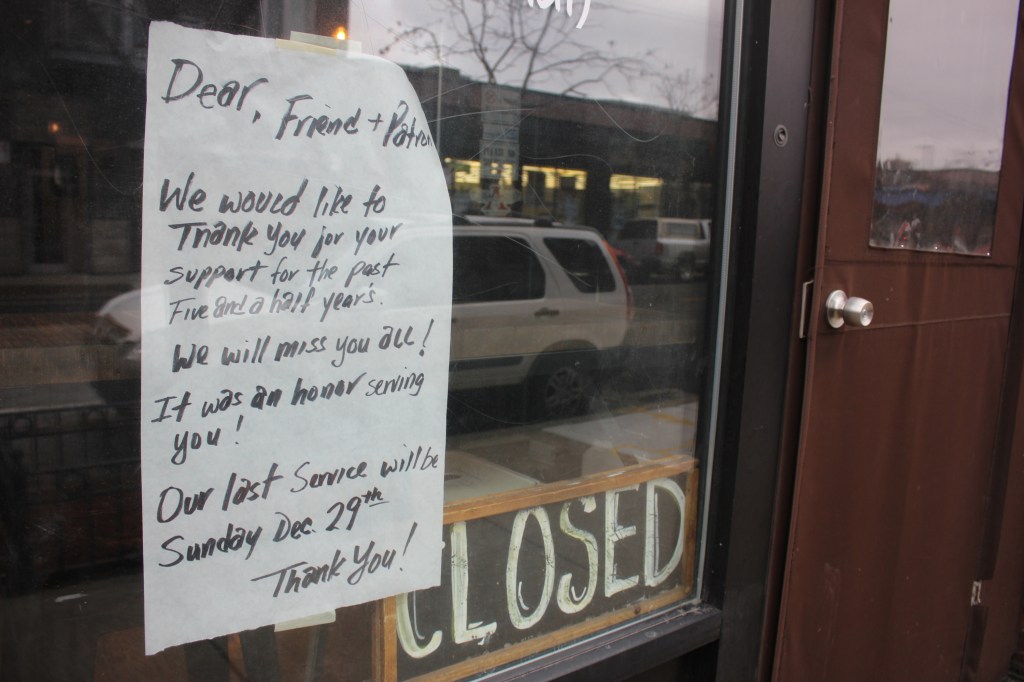 Dear, Friend + Patron
We would like to
Thank you for your
support for the past
Five and a half year's.
We will miss you all!
It was an honor serving
you!
Our last Service will be
Sunday Dec. 29th
Thank You!
CLOSED